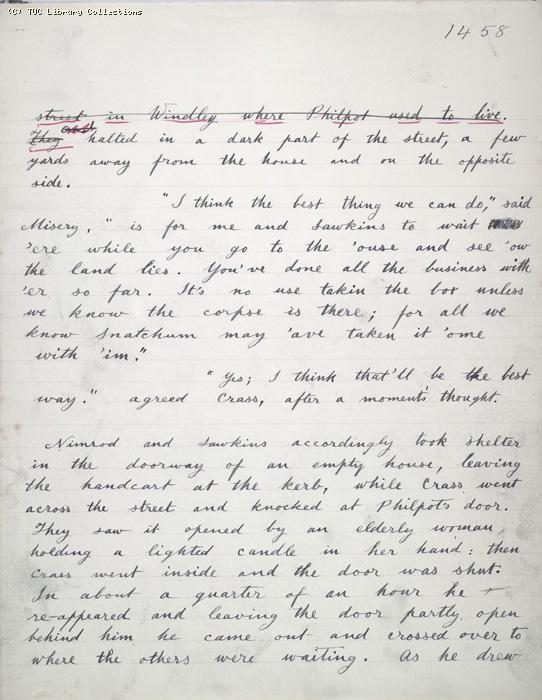 (C) TUC Library Collections
1458
street in Windley where Philpot used to live.
They and halted in a dark part of the street, a few
yards away from the house and on the opposite
side.
"I think the best thing we can do," said
Misery, "is for me and Sawkins to wait
'ere while you go to the 'ouse and see 'ow
the land lies. You've done all the business with
'er so far. It's no use takin the box unless
we know the corpse is there; for all we
know Snatchum may 'ave taken it 'ome
with 'im."
"Yes; I think that'll be the best
way." agreed Crass, after a moment's thought.
Nimrod and Sawkins accordingly took shelter
in the doorway of an empty house, leaving
the handcart at the kerb, while Crass went
across the street and knocked at Philpot's door.
They saw it opened by an elderly woman
holding a lighted candle in her hand: then
Crass went inside and the door was shut.
In about a quarter of an hour he
re-appeared and leaving the door partly open
behind him he came out and crossed over to
where the others were waiting. As he drew